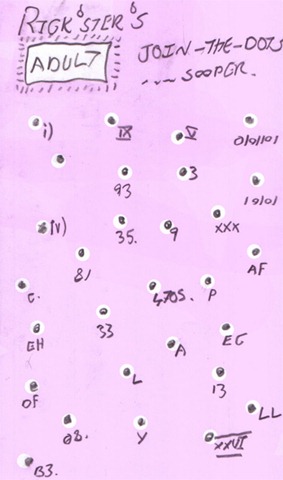 RICK'STER'S
ADULT
JOIN-THE-DOTS
.... SOOPER.
i)
IX
V
0/0/101
93
3
19/0/
IV)
35.
9
XXX
81
AF
C.
4,705.
P
33
EH
EC
A
L
13
OF
LL
Y
XXVI
B3.